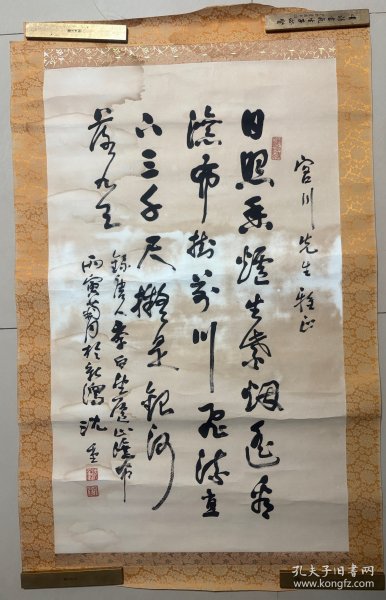 宫川先生雅正
日照香炉生紫烟遥看
瀑布挂前川飞流直
下三千尺疑是银河
落九天
录唐人李白望庐山瀑布
丙寅菊月於
沈
孔夫子旧书网
www.kongfz.com